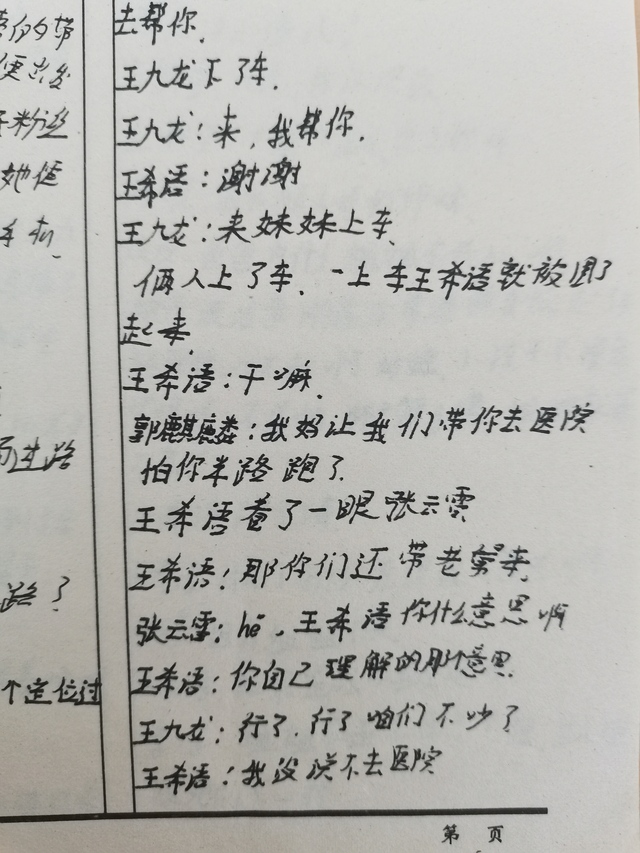 便出发
粉丝
她便
手机
路
路了？
个定位过
去帮你.
王九龙下了车.
王九龙：来，我帮你.
王希语：谢谢
王九龙：来妹妹上车.
俩人上了车、一上车王希语就被围了
起来.
王希语：干嘛.
郭麒麟：我妈让我们带你去医院
怕你半路跑了.
王希语看了一眼张云雷
王希语：那你们还带老舅来.
张云雷：hē，王希语你什么意思啊
王希语：你自己理解的那个意思.
王九龙：行了.行了咱们不吵了
王希语：我没说不去医院
第 页